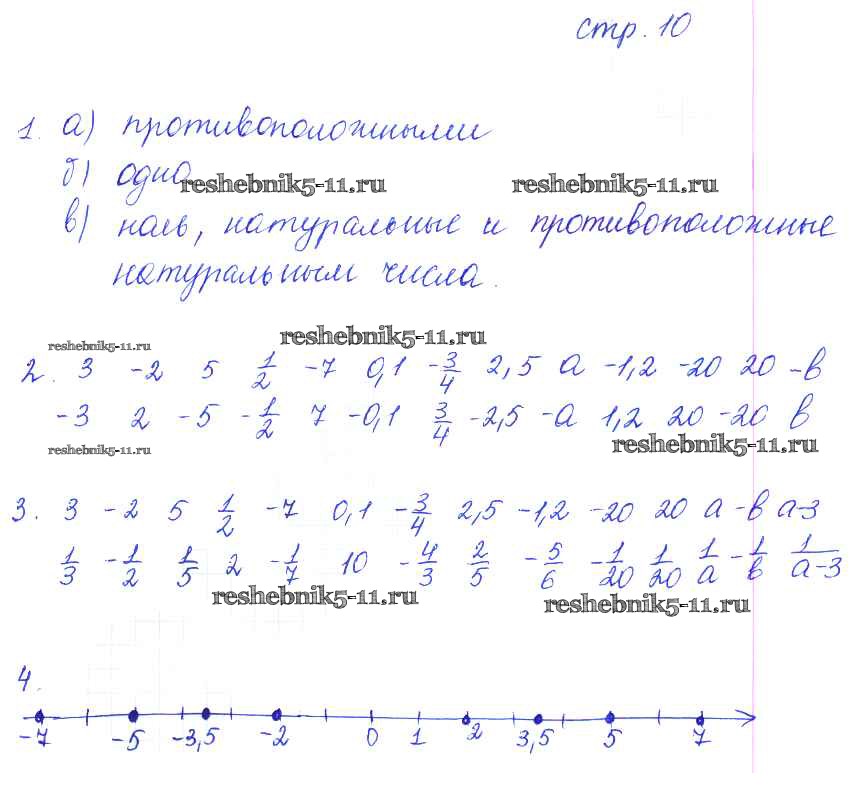 стр. 10
1. а) противоположными
б) одно
reshebnik5-11.ru reshebnik5-11.ru
в) ноль, натуральные и противоположные
натуральным числа.
reshebnik5-11.ru reshebnik5-11.ru
2. 3 -2 5 1/2 -7 0,1 -3/4 2,5 а -1,2 -20 20 -в
-3 2 -5 -1/2 7 -0,1 3/4 -2,5 -а 1,2 20 -20 в
reshebnik5-11.ru reshebnik5-11.ru
3. 3 -2 5 1/2 -7 0,1 -3/4 2,5 -1,2 -20 20 а -в а-3
1/3 -1/2 1/5 2 -1/7 10 -4/3 2/5 -5/6 -1/20 1/20 1/а -1/в 1/а-3
reshebnik5-11.ru reshebnik5-11.ru
4.
-7 -5 -3,5 -2 0 1 2 3,5 5 7